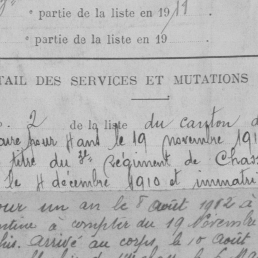 " partie de la liste en 1919
" partie de la liste en 19
TAIL DES SERVICES ET MUTATIONS
2 de la liste du canton d
pour 4 ans le 19 novembre 191
titre du Régiment de Chass
le 4 décembre 1910 et immatri
our un an le 8 août 1912 à
à compter du 19 Novembre
Arrivé au corps le 10 août